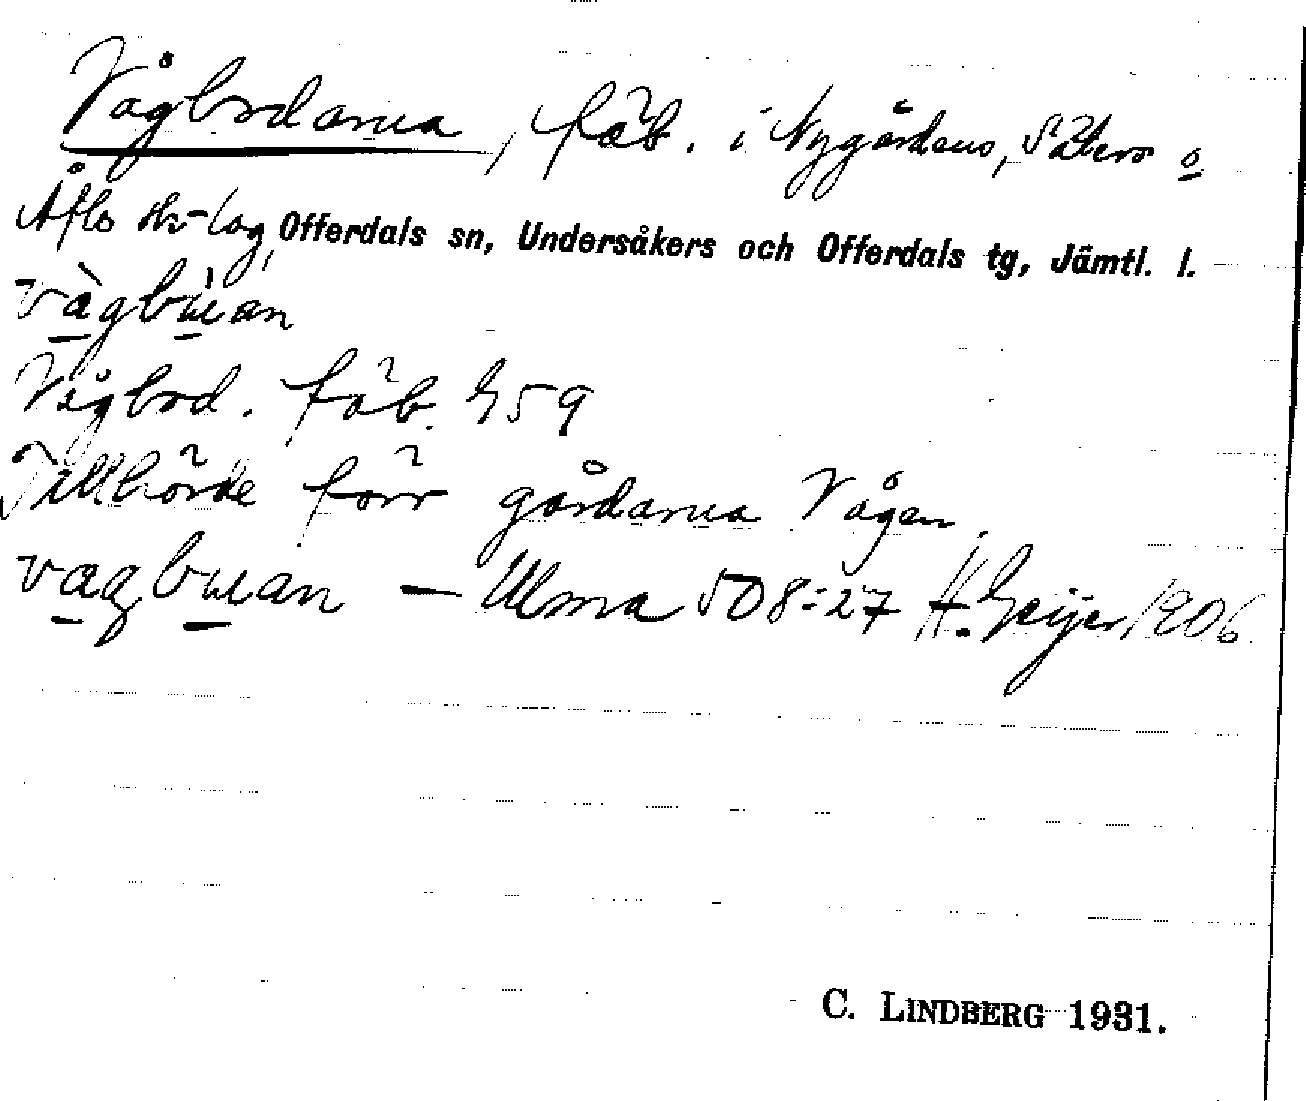 Vågbodarna, fäb. i Nygårdens, Säters o
Åflo sk-lag, Offerdals sn, Undersåkers och Offerdals tg, Jämtl. l.
vàgbùan
Vågbod. fäb. G59
Tillhörde förr gårdarna Vågen.
vagbuan — Ulma 508:27 H. Geijer 1906.
C. LINDBERG 1931.